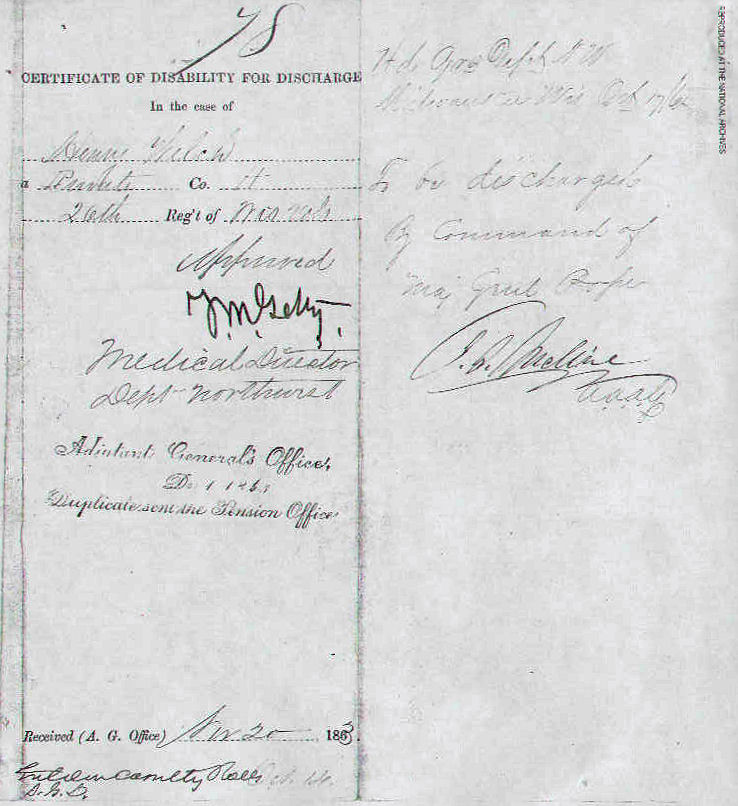 78
CERTIFICATE OF DISABILITY FOR DISCHARGE
In the case of
Welch
a Private Co. H
26th Reg't of Wis Vols
Approved
Medical Director
Dept Northwest
Adjutant General's Office,
Duplicate sent the Pension Office
Received (A. G. Office) Nov 20 1863.
Casualty Rolls
Hd Qrs Dept N W
Milwaukee Wis Oct 17/62
To be discharged
By Command of
Maj Genl Pope
A.A.A.G
REPRODUCED AT THE NATIONAL ARCHIVES